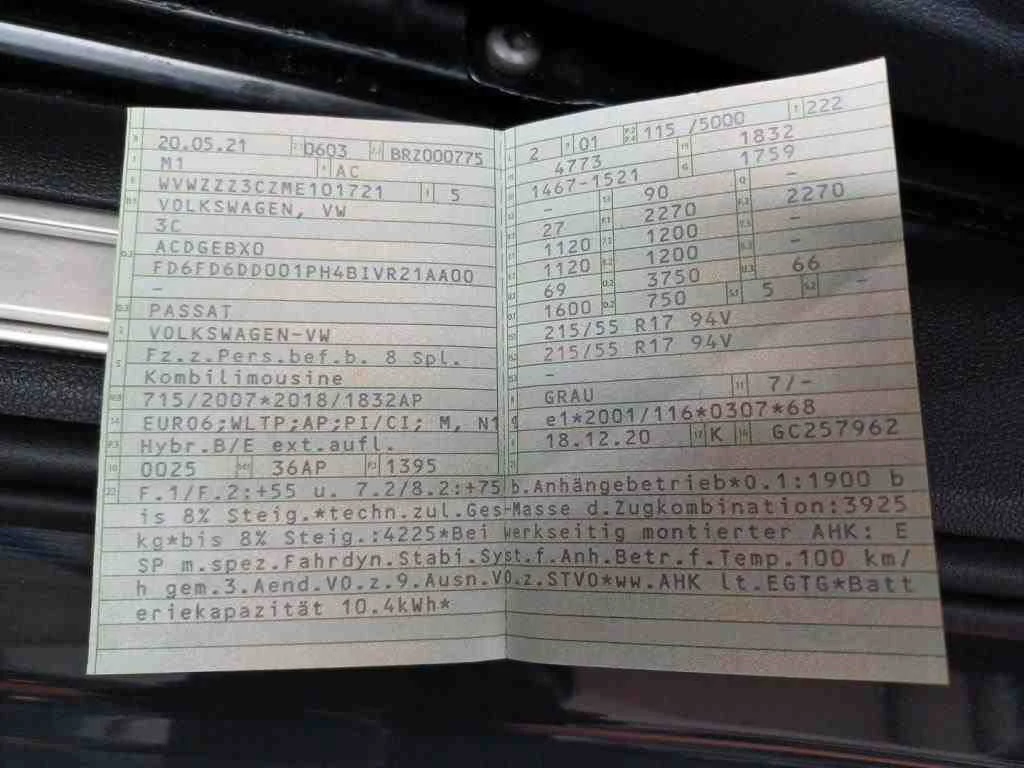 20.05.21 0603 BRZ000775
M1 AC
WVWZZZ3CZME101721 5
VOLKSWAGEN, VW
3C
ACDGEBX0
FD6FD6DD001PH4BIVR21AA00
–
PASSAT
VOLKSWAGEN-VW
Fz.z.Pers.bef.b. 8 Spl.
Kombilimousine
715/2007*2018/1832AP
EURO6;WLTP;AP;PI/CI; M, N1
Hybr.B/E ext.aufl.
0025 36AP 1395
2 01 115 /5000 222
4773 1832
1467-1521 1759
– 90 –
27 2270 2270
1120 1200 –
1120 1200 –
69 3750 66
1600 750 5 –
215/55 R17 94V
215/55 R17 94V
–
GRAU 7/-
e1*2001/116*0307*68
18.12.20 K GC257962
F.1/F.2:+55 u. 7.2/8.2:+75 b.Anhängebetrieb*0.1:1900 b
is 8% Steig.*techn.zul.Ges-Masse d.Zugkombination:3925
kg*bis 8% Steig.:4225*Bei werkseitig montierter AHK: E
SP m.spez.Fahrdyn.Stabi.Syst.f.Anh.Betr.f.Temp.100 km/
h gem.3.Aend.VO.z.9.Ausn.VO.z.STVO*ww.AHK lt.EGTG*Batt
eriekapazität 10.4kWh*